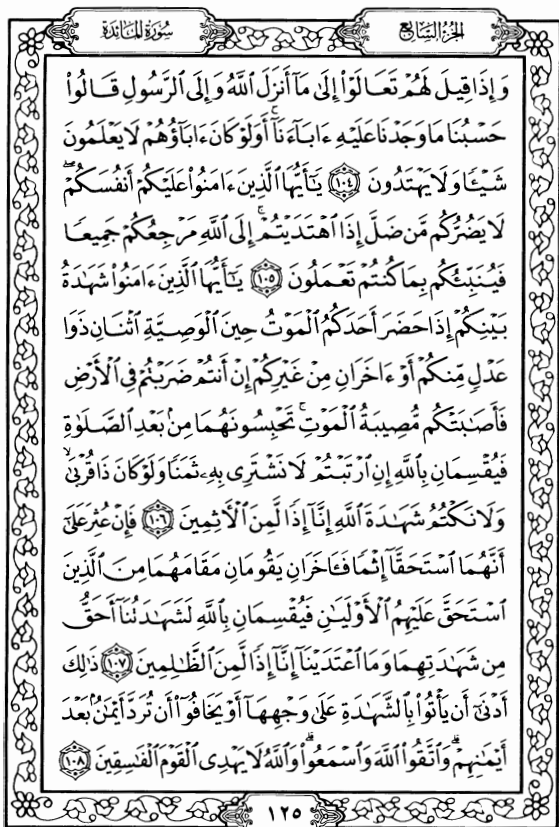 سُورَةُ المَائدَة
الجُزْءُ السَّابِعُ
وَإِذَا قِيلَ لَهُمْ تَعَالَوْا۟ إِلَىٰ مَآ أَنزَلَ ٱللَّهُ وَإِلَى ٱلرَّسُولِ قَالُوا۟
حَسْبُنَا مَا وَجَدْنَا عَلَيْهِ ءَابَآءَنَآ ۚ أَوَلَوْ كَانَ ءَابَآؤُهُمْ لَا يَعْلَمُونَ
شَيْـًٔا وَلَا يَهْتَدُونَ ١٠٤ يَـٰٓأَيُّهَا ٱلَّذِينَ ءَامَنُوا۟ عَلَيْكُمْ أَنفُسَكُمْ ۖ
لَا يَضُرُّكُم مَّن ضَلَّ إِذَا ٱهْتَدَيْتُمْ ۚ إِلَى ٱللَّهِ مَرْجِعُكُمْ جَمِيعًا
فَيُنَبِّئُكُم بِمَا كُنتُمْ تَعْمَلُونَ ١٠٥ يَـٰٓأَيُّهَا ٱلَّذِينَ ءَامَنُوا۟ شَهَـٰدَةُ
بَيْنِكُمْ إِذَا حَضَرَ أَحَدَكُمُ ٱلْمَوْتُ حِينَ ٱلْوَصِيَّةِ ٱثْنَانِ ذَوَا
عَدْلٍ مِّنكُمْ أَوْ ءَاخَرَانِ مِنْ غَيْرِكُمْ إِنْ أَنتُمْ ضَرَبْتُمْ فِى ٱلْأَرْضِ
فَأَصَـٰبَتْكُم مُّصِيبَةُ ٱلْمَوْتِ ۚ تَحْبِسُونَهُمَا مِنۢ بَعْدِ ٱلصَّلَوٰةِ
فَيُقْسِمَانِ بِٱللَّهِ إِنِ ٱرْتَبْتُمْ لَا نَشْتَرِى بِهِۦ ثَمَنًا وَلَوْ كَانَ ذَا قُرْبَىٰ ۙ
وَلَا نَكْتُمُ شَهَـٰدَةَ ٱللَّهِ إِنَّآ إِذًا لَّمِنَ ٱلْـَٔاثِمِينَ ١٠٦ فَإِنْ عُثِرَ عَلَىٰٓ
أَنَّهُمَا ٱسْتَحَقَّآ إِثْمًا فَـَٔاخَرَانِ يَقُومَانِ مَقَامَهُمَا مِنَ ٱلَّذِينَ
ٱسْتَحَقَّ عَلَيْهِمُ ٱلْأَوْلَيَـٰنِ فَيُقْسِمَانِ بِٱللَّهِ لَشَهَـٰدَتُنَآ أَحَقُّ
مِن شَهَـٰدَتِهِمَا وَمَا ٱعْتَدَيْنَآ إِنَّآ إِذًا لَّمِنَ ٱلظَّـٰلِمِينَ ١٠٧ ذَٰلِكَ
أَدْنَىٰٓ أَن يَأْتُوا۟ بِٱلشَّهَـٰدَةِ عَلَىٰ وَجْهِهَآ أَوْ يَخَافُوٓا۟ أَن تُرَدَّ أَيْمَـٰنٌۢ بَعْدَ
أَيْمَـٰنِهِمْ ۗ وَٱتَّقُوا۟ ٱللَّهَ وَٱسْمَعُوا۟ ۗ وَٱللَّهُ لَا يَهْدِى ٱلْقَوْمَ ٱلْفَـٰسِقِينَ ١٠٨
١٢٥